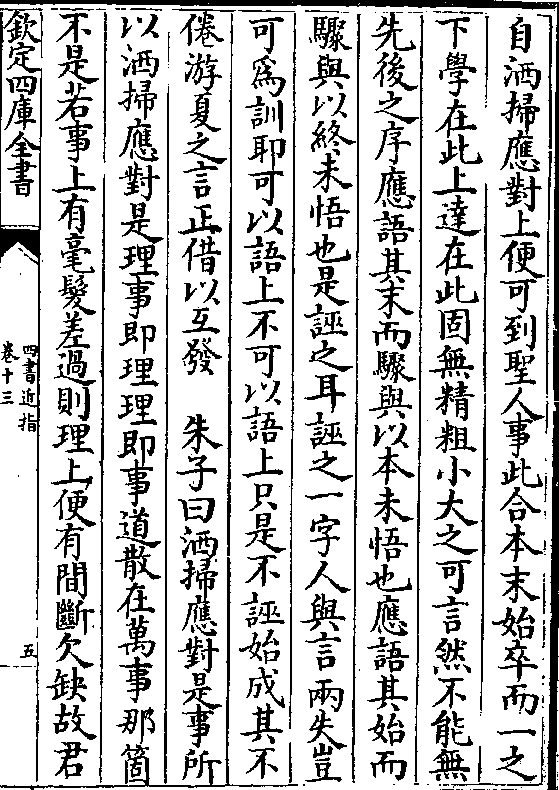 自洒掃應對上便可到聖人事此合本末始卒而一之
下學在此上達在此固無精粗小大之可言然不能無
先後之序應語其末而驟與以本未悟也應語其始而
驟與以終未悟也是誣之耳誣之一字人與言兩失豈
可為訓耶可以語上不可以語上只是不誣始成其不
倦游夏之言正借以互發　朱子曰洒掃應對是事所
以洒掃應對是理事即理理即事道散在萬事那箇
不是若事上有毫髮差過則理上便有間斷欠缺故君
欽定四庫全書
四書近指
卷十三
五